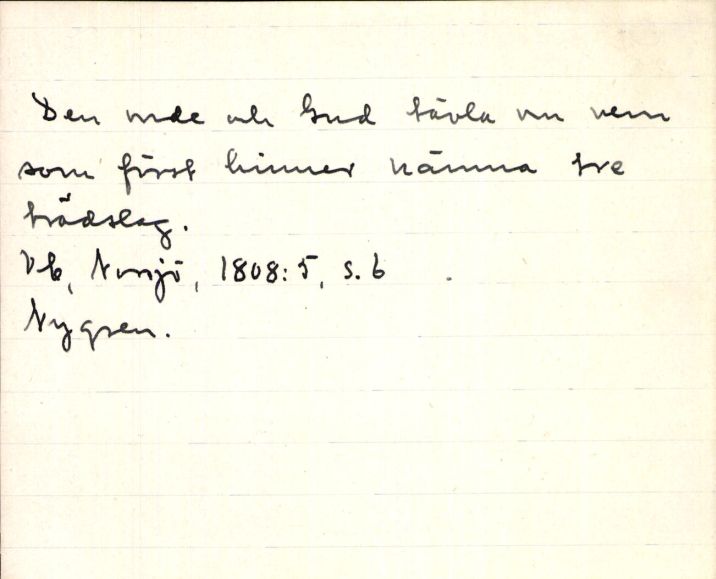 Den onde och Gud tävla om vem
som först hinner nämna tre
trädslag.
Vb, Norsjö, 1808:5, s. 6
Nygren.